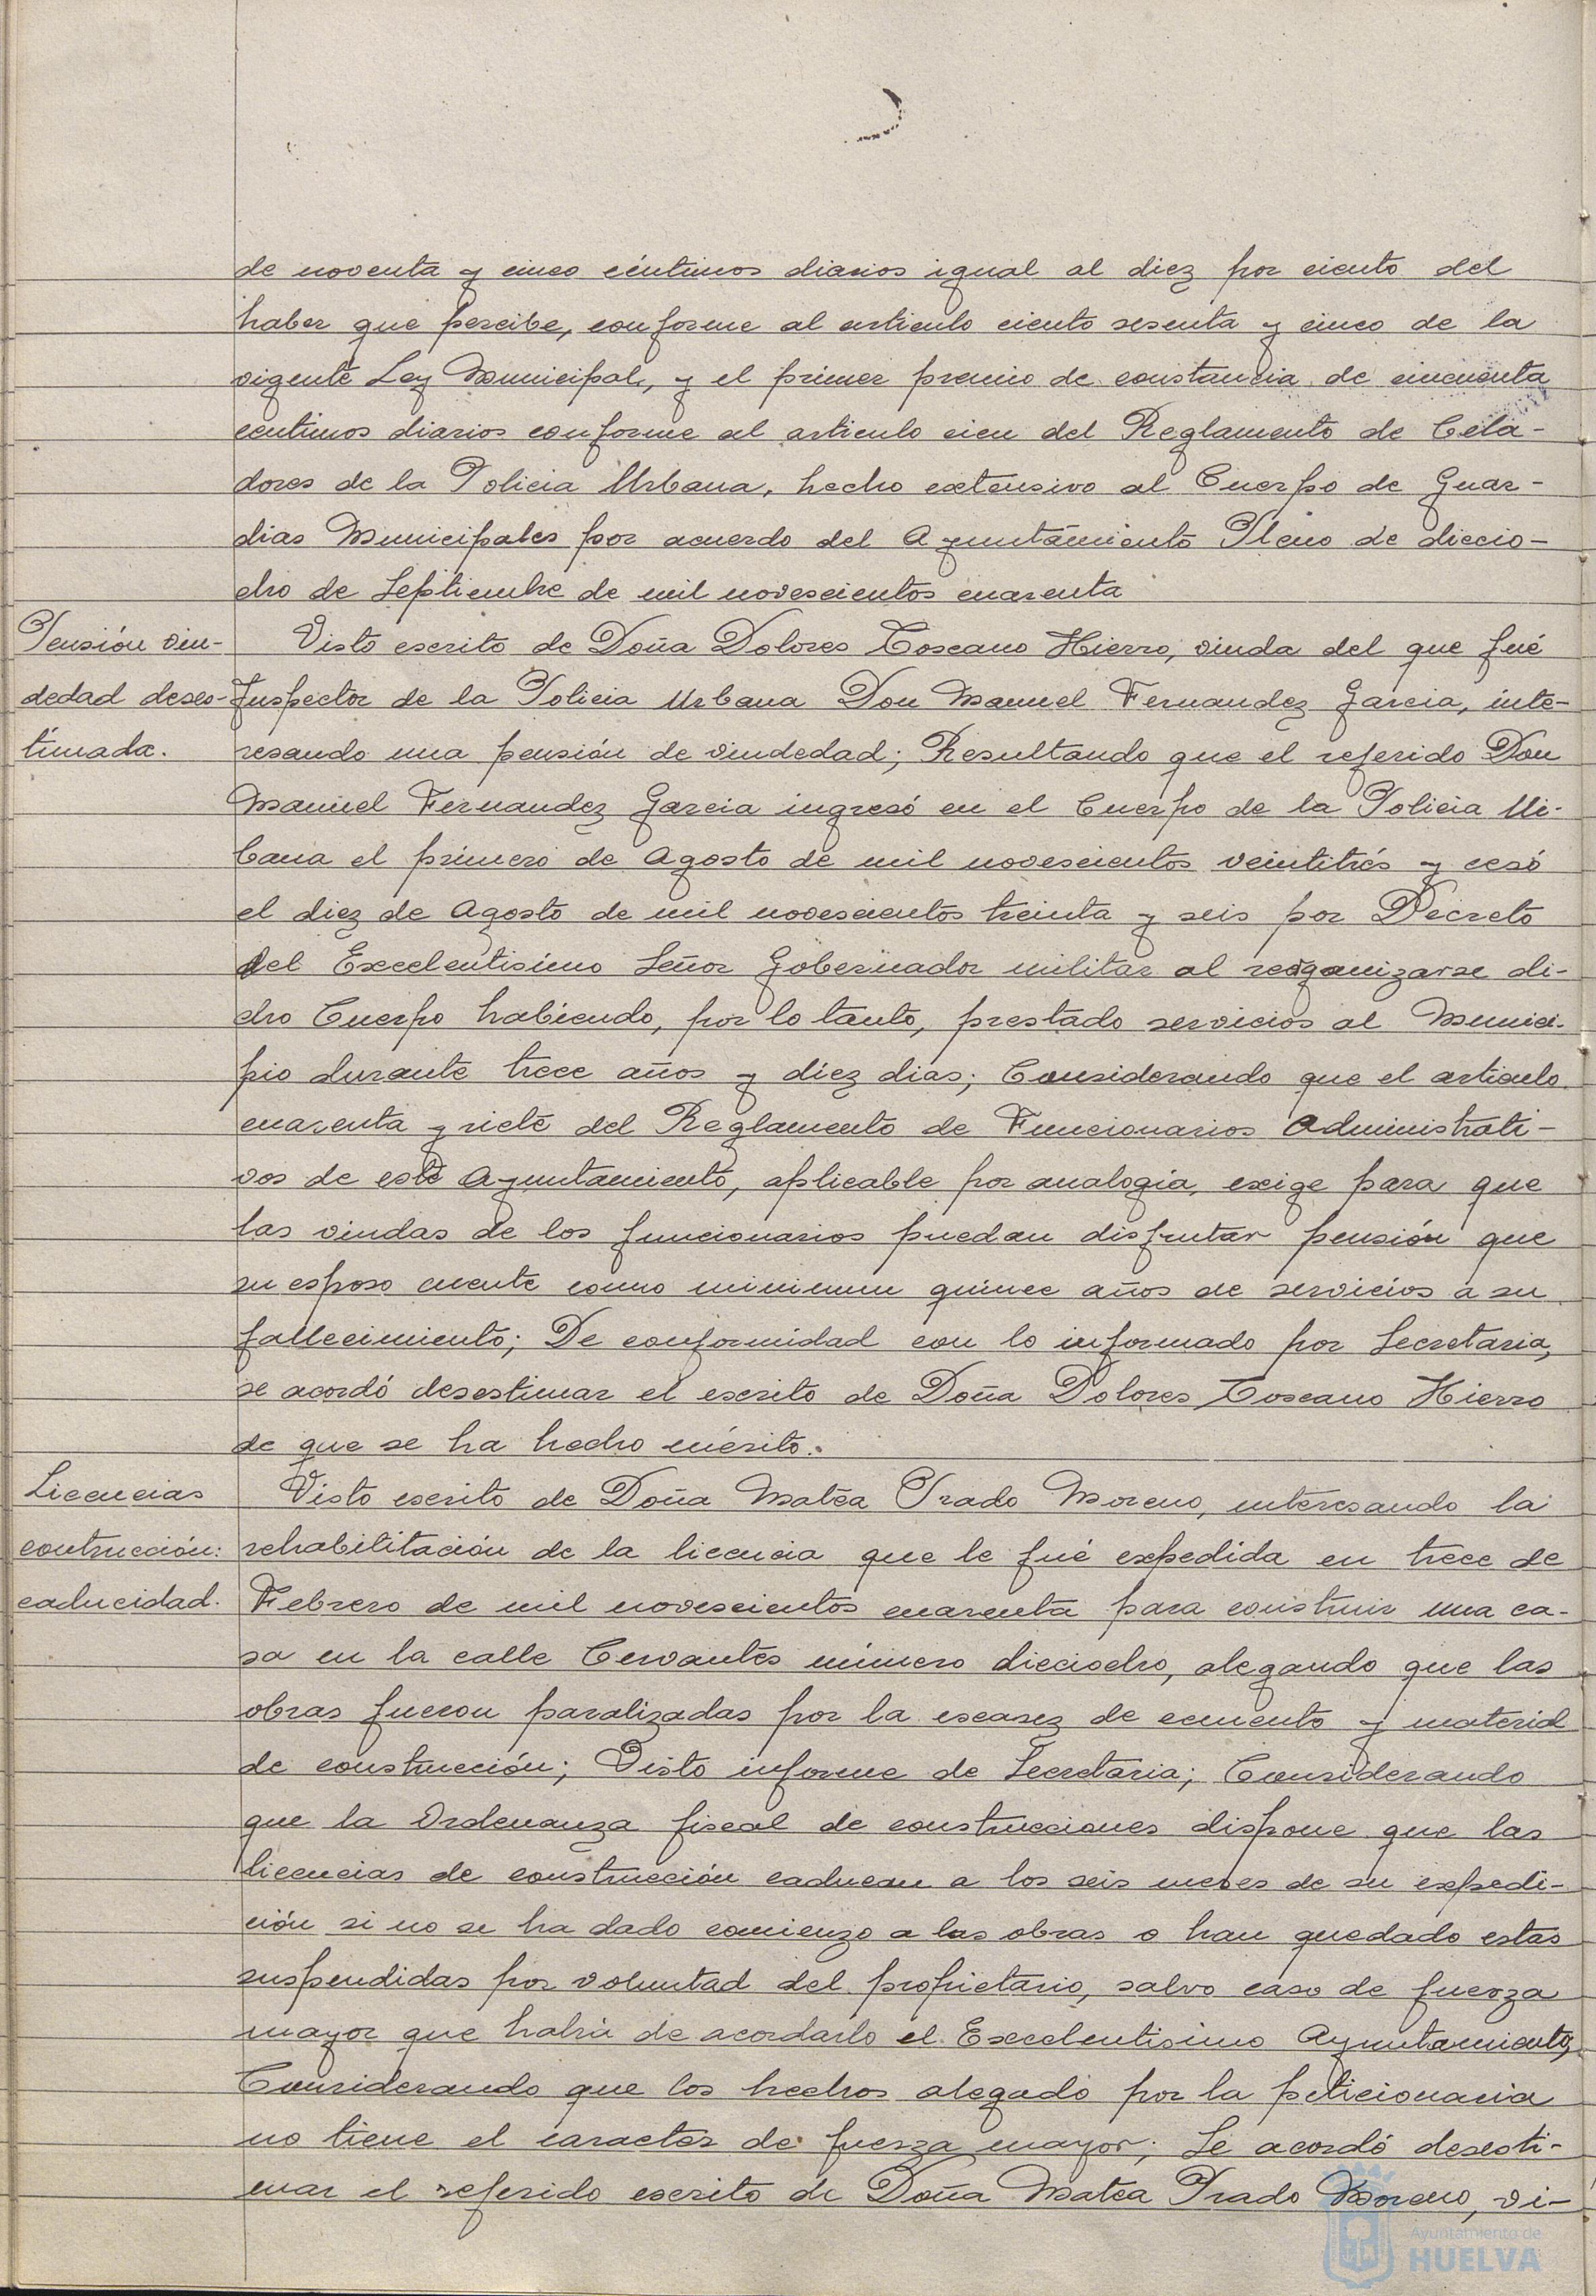 de noventa y cinco céntimos diarios igual al diez por ciento del
haber que percibe, conforme al articulo ciento sesenta y cinco de la
vigente Ley Municipal, y el primer premio de constancia de cincuenta
centimos diarios conforme al articulo cien del Reglamento de Cela-
dores de la Policia Urbana, hecho extensivo al Cuerpo de Guar-
dias Municipales por acuerdo del Ayuntamiento Pleno de diecio-
cho de Septiembre de mil novescientos cuarenta
Pensión viu-
dedad deses-
timada.
Visto escrito de Doña Dolores Toscano Hierro, viuda del que fué
Inspector de la Policia Urbana Don Manuel Fernandez Garcia, inte-
resando una pensión de viudedad; Resultando que el referido Don
Manuel Fernandez Garcia ingresó en el Cuerpo de la Policia Ur-
bana el primero de Agosto de mil novescientos veintitrés y cesó
el diez de Agosto de mil novescientos treinta y seis por Decreto
del Excelentisimo Señor Gobernador militar al reorganizarse di-
cho Cuerpo habiendo, por lo tanto, prestado servicios al Munici-
pio durante trece años y diez dias; Considerando que el articulo
cuarenta y siete del Reglamento de Funcionarios Administrati-
vos de este Ayuntamiento, aplicable por analogía, exige para que
las viudas de los funcionarios puedan disfrutar pensión que
su esposo cuente como minimun quince años de servicios a su
fallecimiento; De conformidad con lo informado por Secretaria,
se acordó desestimar el escrito de Doña Dolores Toscano Hierro
de que se ha hecho mérito.
Licencias
contrucción:
caducidad.
Visto escrito de Doña Matéa Prado Moreno, interesando la
rehabilitación de la licencia que le fué expedida en trece de
Febrero de mil novescientos cuarenta para construir una ca-
sa en la calle Cervantes número dieciocho, alegando que las
obras fueron paralizadas por la escasez de cemento y material
de construcción; Visto informe de Secretaria; Considerando
que la Ordenanza fiscal de construcciones dispone que las
licencias de construcción caducan a los seis meses de su expedi-
ción si no se ha dado comienzo a las obras o han quedado estas
suspendidas por voluntad del propietario, salvo caso de fuerza
mayor que habrá de acordarlo el Excelentisimo Ayuntamiento;
Considerando que los hechos alegado por la peticionaria
no tiene el caracter de fuerza mayor; Se acordó desesti-
mar el referido escrito de Doña Matéa Prado Moreno, vi-
Ayuntamiento de
HUELVA